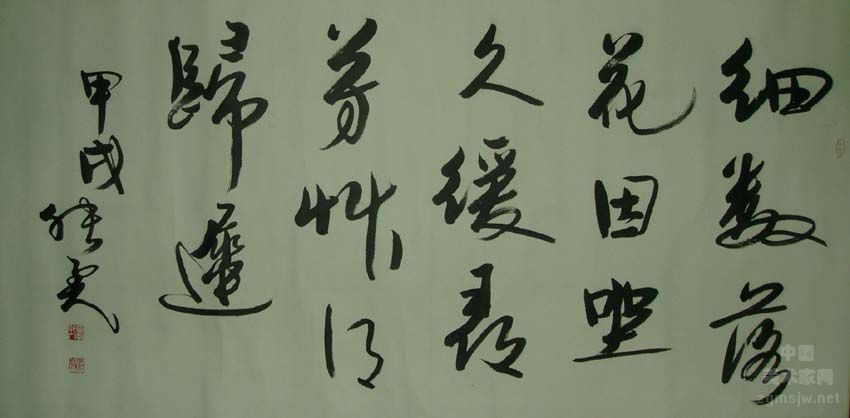 細數落
花因坐
久緩尋
芳艸得
歸遲
甲戌
中国
美术家网
zgmsjw.net